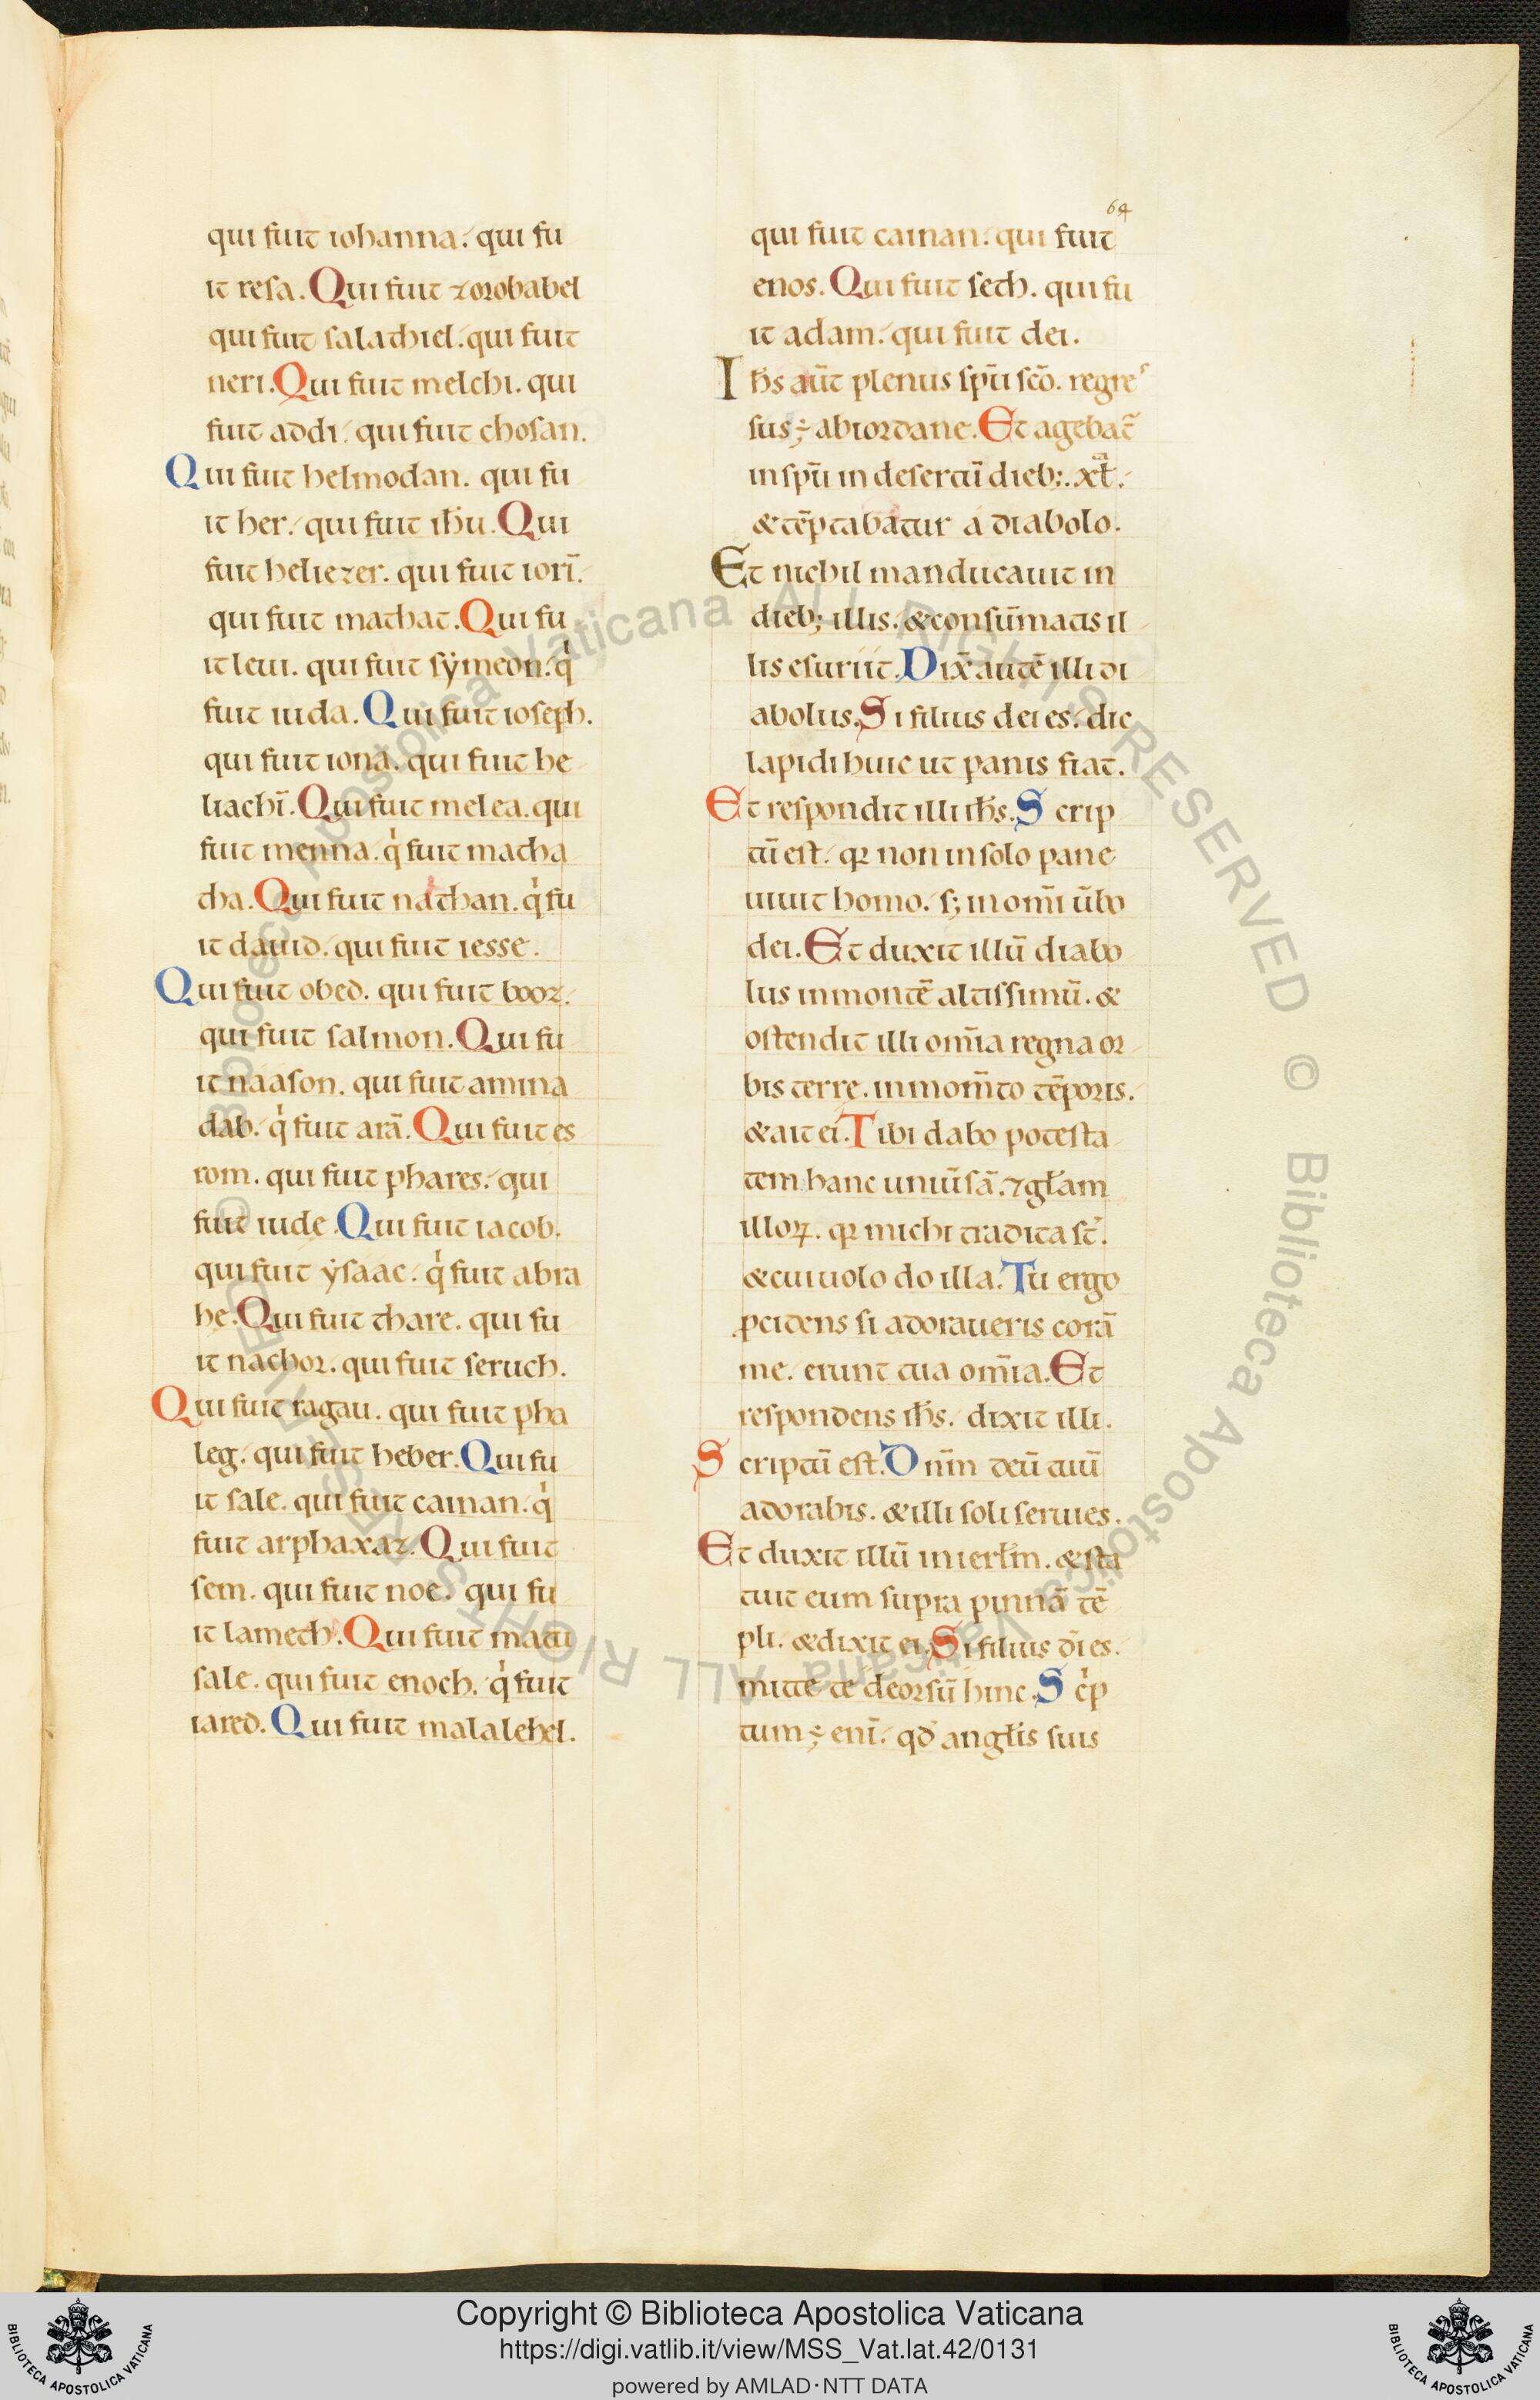 64
qui fuit iohanna. qui fu
it resa. Qui fuit zorobabel
qui fuit salathiel. qui fuit
neri. Qui fuit melchi. qui
fuit addi. qui fuit chosan.
Qui fuit helmodan. qui fu
it her. qui fuit ih̄u. Qui
fuit heliezer. qui fuit iorī.
qui fuit mathat. Qui fu
it leui. qui fuit sẏmeon. qͥ
fuit iuda. Qui fuit ioseph.
qui fuit iona. qui fuit he
liachī. Qui fuit melea. qui
fuit menna. qͥ fuit matha
tha. Qui fuit nathan. qͥ fu
it dauid. qui fuit iesse.
Qui fuit obed. qui fuit booz.
qui fuit salmon. Qui fu
it naason. qui fuit amina
dab. qͥ fuit arā. Qui fuit es
rom. qui fuit phares. qui
fuit iude. Qui fuit iacob.
qui fuit ẏsaac. qͥ fuit abra
he. Qui fuit thare. qui fu
it nachor. qui fuit seruch.
Qui fuit ragau. qui fuit pha
leg. qui fuit heber. Qui fu
it sale. qui fuit cainan. qͥ
fuit arphaxaz. Qui fuit
sem. qui fuit noe. qui fu
it lamech. Qui fuit matu
sale. qui fuit enoch. qͥ fuit
iared. Qui fuit malalehel.
qui fuit cainan. qui fuit
enos. Qui fuit seth. qui fu
it adam. qui fuit dei.
Ih̄s aūt plenus spū scō. regres
sus ÷ abiordane. Et agebat᷑
in spū in desertū dieb;. xl.
& tēptabatur a diabolo.
Et nichil manducauit in
dieb; illis. & consūmatis il
lis esuriit. Dix̄ autē illi di
abolus. Si filius dei es. dic
lapidi huic ut panis fiat.
Et respondit illi ih̄s. Scrip
tū est. qꝛ non in solo pane
uiuit homo. s; in om̄i ūbo
dei. Et duxit illū diabo
lus in montē altissimū. &
ostendit illi om̄ia regna or
bis terre. in mom̄to tēporis.
& ait ei. Tibi dabo potesta
tem hanc uniūsā. ⁊ gl̄am
illoꝝ. qꝛ michi tradita st̄.
& cui uolo do illa. Tu ergo
ꝓcidens si adoraueris corā
me. erunt tua om̄ia. Et
respondens ih̄s. dixit illi.
Scriptū est. Dnm̄ deū tuū
adorabis. & illi soli seruies.
Et duxit illū in ierl̄m. & sta
tuit eum supra pinnā tē
pli. & dixit ei. Si filius dī es.
mitte te deorsū hinc. Scͥp
tum ÷ enī. qd̄ angl̄is suis
© Biblioteca Apostolica Vaticana ALL RIGHTS RESERVED © Biblioteca Apostolica Vaticana ALL RIGHTS RESERVED
Copyright © Biblioteca Apostolica Vaticana
https://digi.vatlib.it/view/MSS_Vat.lat.42/0131
powered by AMLAD·NTT DATA
BIBLIOTECA APOSTOLICA VATICANA
BIBLIOTECA APOSTOLICA VATICANA